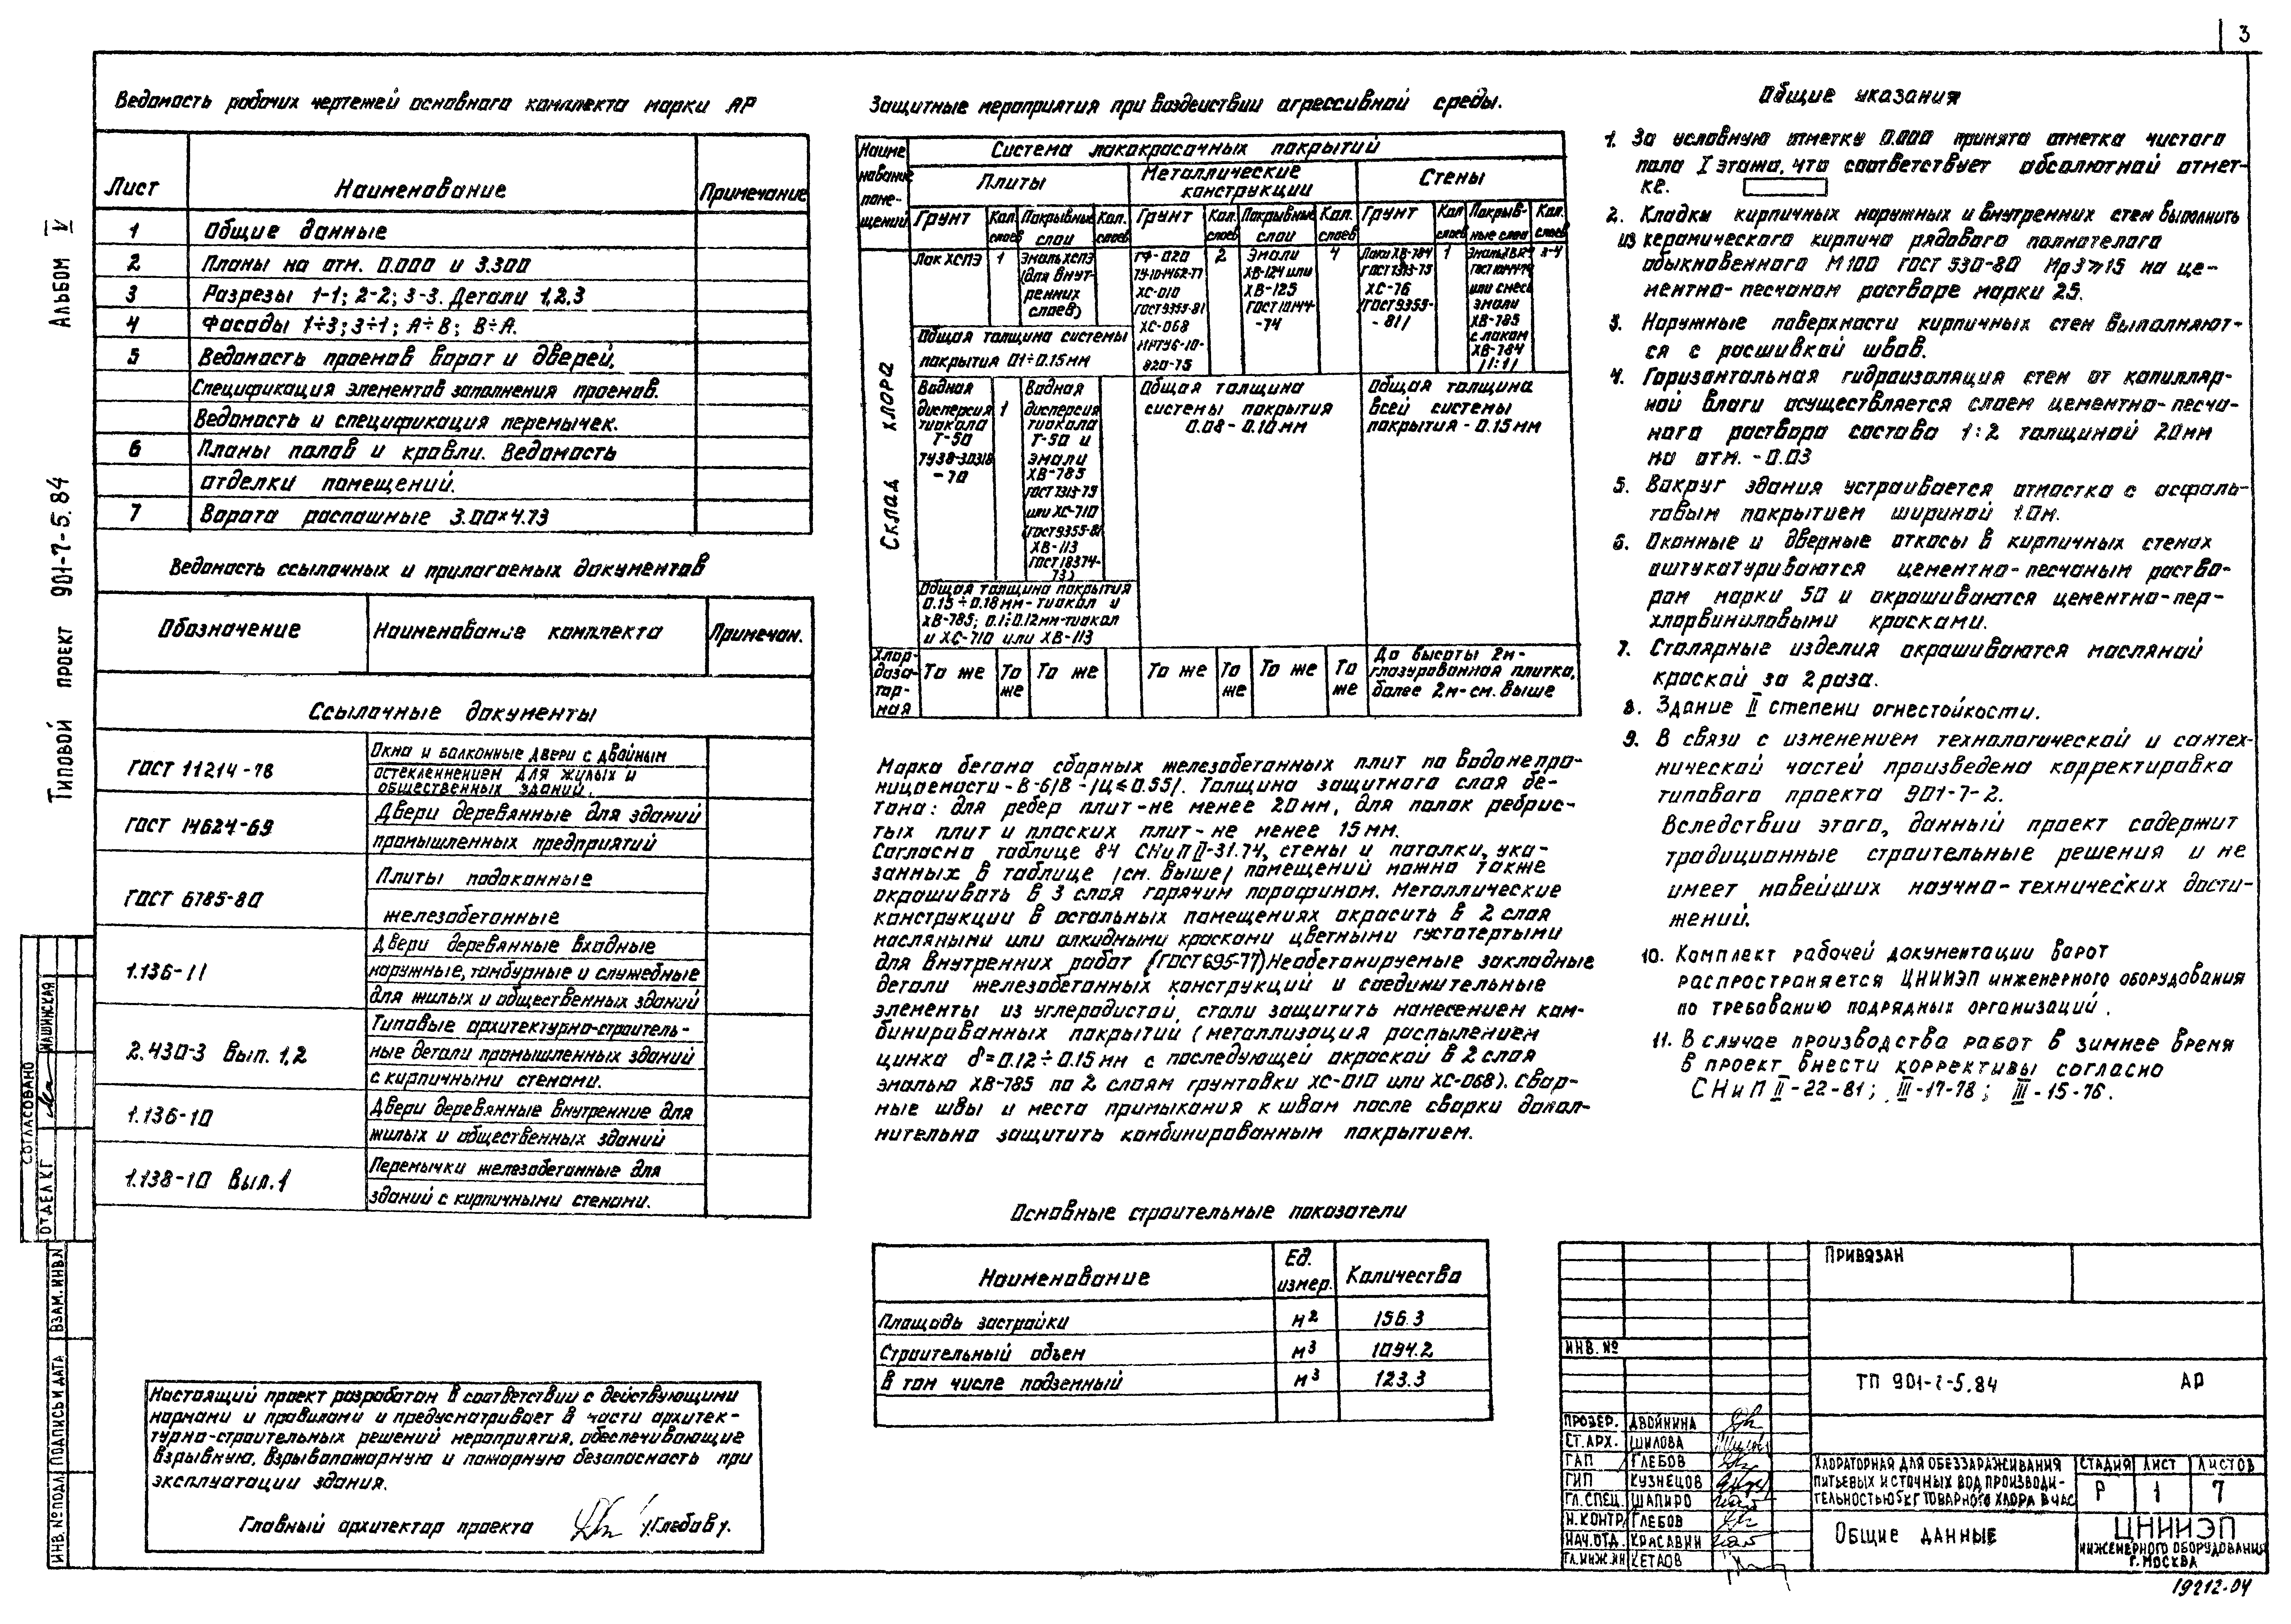 3
Ведомость рабочих чертежей основного комплекта марки АР
Лист Наименование Примечание
1 Общие данные
2 Планы на отм. 0.000 и 3.300
3 Разрезы 1-1; 2-2; 3-3. Детали 1,2,3
4 Фасады 1÷3; 3÷1; А÷В; В÷А.
5 Ведомость проемов ворот и дверей.
Спецификация элементов заполнения проемов.
Ведомость и спецификация перемычек.
6 Планы полов и кровли. Ведомость
отделки помещений.
7 Ворота распашные 3.00×4.73
Ведомость ссылочных и прилагаемых документов
Обозначение Наименование комплекта Примечан.
Ссылочные документы
ГОСТ 11214-78 Окна и балконные двери с двойным
остекленнением для жилых и
общественных зданий.
ГОСТ 14624-69 Двери деревянные для зданий
промышленных предприятий
ГОСТ 6785-80 Плиты подоконные
железобетонные
1.136-11 Двери деревянные входные
наружные, тамбурные и служебные
для жилых и общественных зданий
2.430-3 Вып. 1,2 Типовые архитектурно-строитель-
ные детали промышленных зданий
с кирпичными стенами.
1.136-10 Двери деревянные внутренние для
жилых и общественных зданий
1.138-10 Вып.1 Перемычки железобетонные для
зданий с кирпичными стенами.
Настоящий проект разработан в соответствии с действующими
нормами и правилами и предусматривает в части архитек-
турно-строительных решений мероприятия, обеспечивающие
взрывную, взрывопожарную и пожарную безопасность при
эксплуатации здания.
Главный архитектор проекта /Глебов/.
Защитные мероприятия при воздействии агрессивной среды.
Наиме-
нование
поме-
щений
Система лакокрасочных покрытий
Плиты Металлические
конструкции Стены
Грунт Кол. слоев Покрывные слои Кол. слоев Грунт Кол. слоев Покрывные слои Кол. слоев Грунт Кол слоев Покрыв-
ные слои Кол. слоев
Склад хлора
Лак ХСПЭ 1 Эмаль ХСПЭ
(для внут-
ренних
слоев)
Общая толщина системы
покрытия 0.1÷0.15мм
ГФ-020
ХС-010
ГОСТ 9355-81
ХС-068
МРТУ6-10-
820-75
2
Эмали
ХВ-124 или
ХВ-125
ГОСТ 10144
-74
4
Лаки ХВ-784
ГОСТ 7313-75
ХС-76
/ГОСТ 9355-
-81/
1
или смесь
эмали
ХВ-785
с лаком
ХВ-784
/1:1/
3-4
Водная
дисперсия
тиокола
Т-50
ТУ38-30318
-70
1
Водная
дисперсия
тиокола
Т-50 и
эмали
ХВ-785
ГОСТ 7313-75
или ХС-710
(ГОСТ 9355-81
ХВ-113
ГОСТ 18374-
73)
Общая толщина
системы покрытия
0.08-0.10мм
Общая толщина
всей системы
покрытия-0.15мм
Общая толщина покрытия
0.15÷0.18мм-тиокол и
ХВ-785; 0.1÷0.12мм-тиокол
и ХС-710 или ХВ-113
Хлор-
доза-
тор-
ная
То же То же То же То же То же То же То же
До высоты 2м-
глазурованная плитка,
более 2м-см. выше
Марка бетона сборных железобетонных плит по водонепро-
ницаемости-В-6/В-/ц≤0.55/. Толщина защитного слоя бе-
тона: для ребер плит-не менее 20мм, для полок ребрис-
тых плит и плоских плит-не менее 15мм.
Согласно таблице 84 СНиП II-31.74, стены и потолки, ука-
занных в таблице /см. выше/ помещений можно также
окрашивать в 3 слоя горячим парафином. Металлические
конструкции в остальных помещениях окрасить в 2 слоя
масляными или алкидными красками цветными густотертыми
для внутренних работ (ГОСТ 695-77) Необетонируемые закладные
детали железобетонных конструкций и соединительные
элементы из углеродистой, стали защитить нанесением ком-
бинированных покрытий (металлизация распылением
цинка δ=0.12÷0.15мм с последующей окраской в 2 слоя
эмалью ХВ-785 по 2 слоям грунтовки ХС-010 или ХС-068). Свар-
ные швы и места примыкания к швам после сварки допол-
нительно защитить комбинированным покрытием.
Основные строительные показатели
Наименование Ед. измер. Количества
Площадь застройки м2 156.3
Строительный объем м3 1094.2
В том числе подземный м3 123.3
Общие указания
1. За условную отметку 0.000 принята отметка чистого
пола I этажа, что соответствует абсолютной отмет-
ке.
2. Кладку кирпичных наружных и внутренних стен выполнить
из керамического кирпича рядового полнотелого
обыкновенного М100 ГОСТ 530-80 Мрз≥15 на це-
ментно-песчаном растворе марки 25.
3. Наружные поверхности кирпичных стен выполняют-
ся с расшивкой швов.
4. Горизонтальная гидроизоляция стен от капилляр-
ной влаги осуществляется слоем цементно-песча-
ного раствора состава 1:2 толщиной 20мм
на отм. -0.03
5. Вокруг здания устраивается отмостка с асфаль-
товым покрытием шириной 1.0м.
6. Оконные и дверные откосы в кирпичных стенах
оштукатуриваются цементно-песчаным раство-
ром марки 50 и окрашиваются цементно-пер-
хлорвиниловыми красками.
7. Столярные изделия окрашиваются масляной
краской за 2 раза.
8. Здание II степени огнестойкости.
9. В связи с изменением технологической и сантех-
нической частей произведена корректировка
типового проекта 901-7-2.
Вследствии этого, данный проект содержит
традиционные строительные решения и не
имеет новейших научно-технических дости-
жений.
10. Комплект рабочей документации ворот
распространяется ЦНИИЭП инженерного оборудования
по требованию подрядных организаций.
11. В случае производства работ в зимнее время
в проект внести коррективы согласно
СНиП II-22-81; III-17-78; III-15-76.
Привязан
Инв. №
ТП 901-7-5.84 АР
Провер. Двойнина
Ст. арх. Шилова
ГАП Глебов
ГИП Кузнецов
Гл. спец. Шапиро
Н. контр Глебов
Нач. отд. Красавин
Гл. инж. ин Кетаов
Хлораторная для обеззараживания
питьевых и сточных вод производи-
тельностью 5кг товарного хлора в час
Стадия Лист Листов
Р 1 7
Общие данные
ЦНИИЭП
инженерного оборудования
г. Москва
19212-04
Типовой проект 901-7-5.84 Альбом V
Согласовано
Отдел КГ Машинская
Инв. № подл Подпись и дата Взам. инв. N